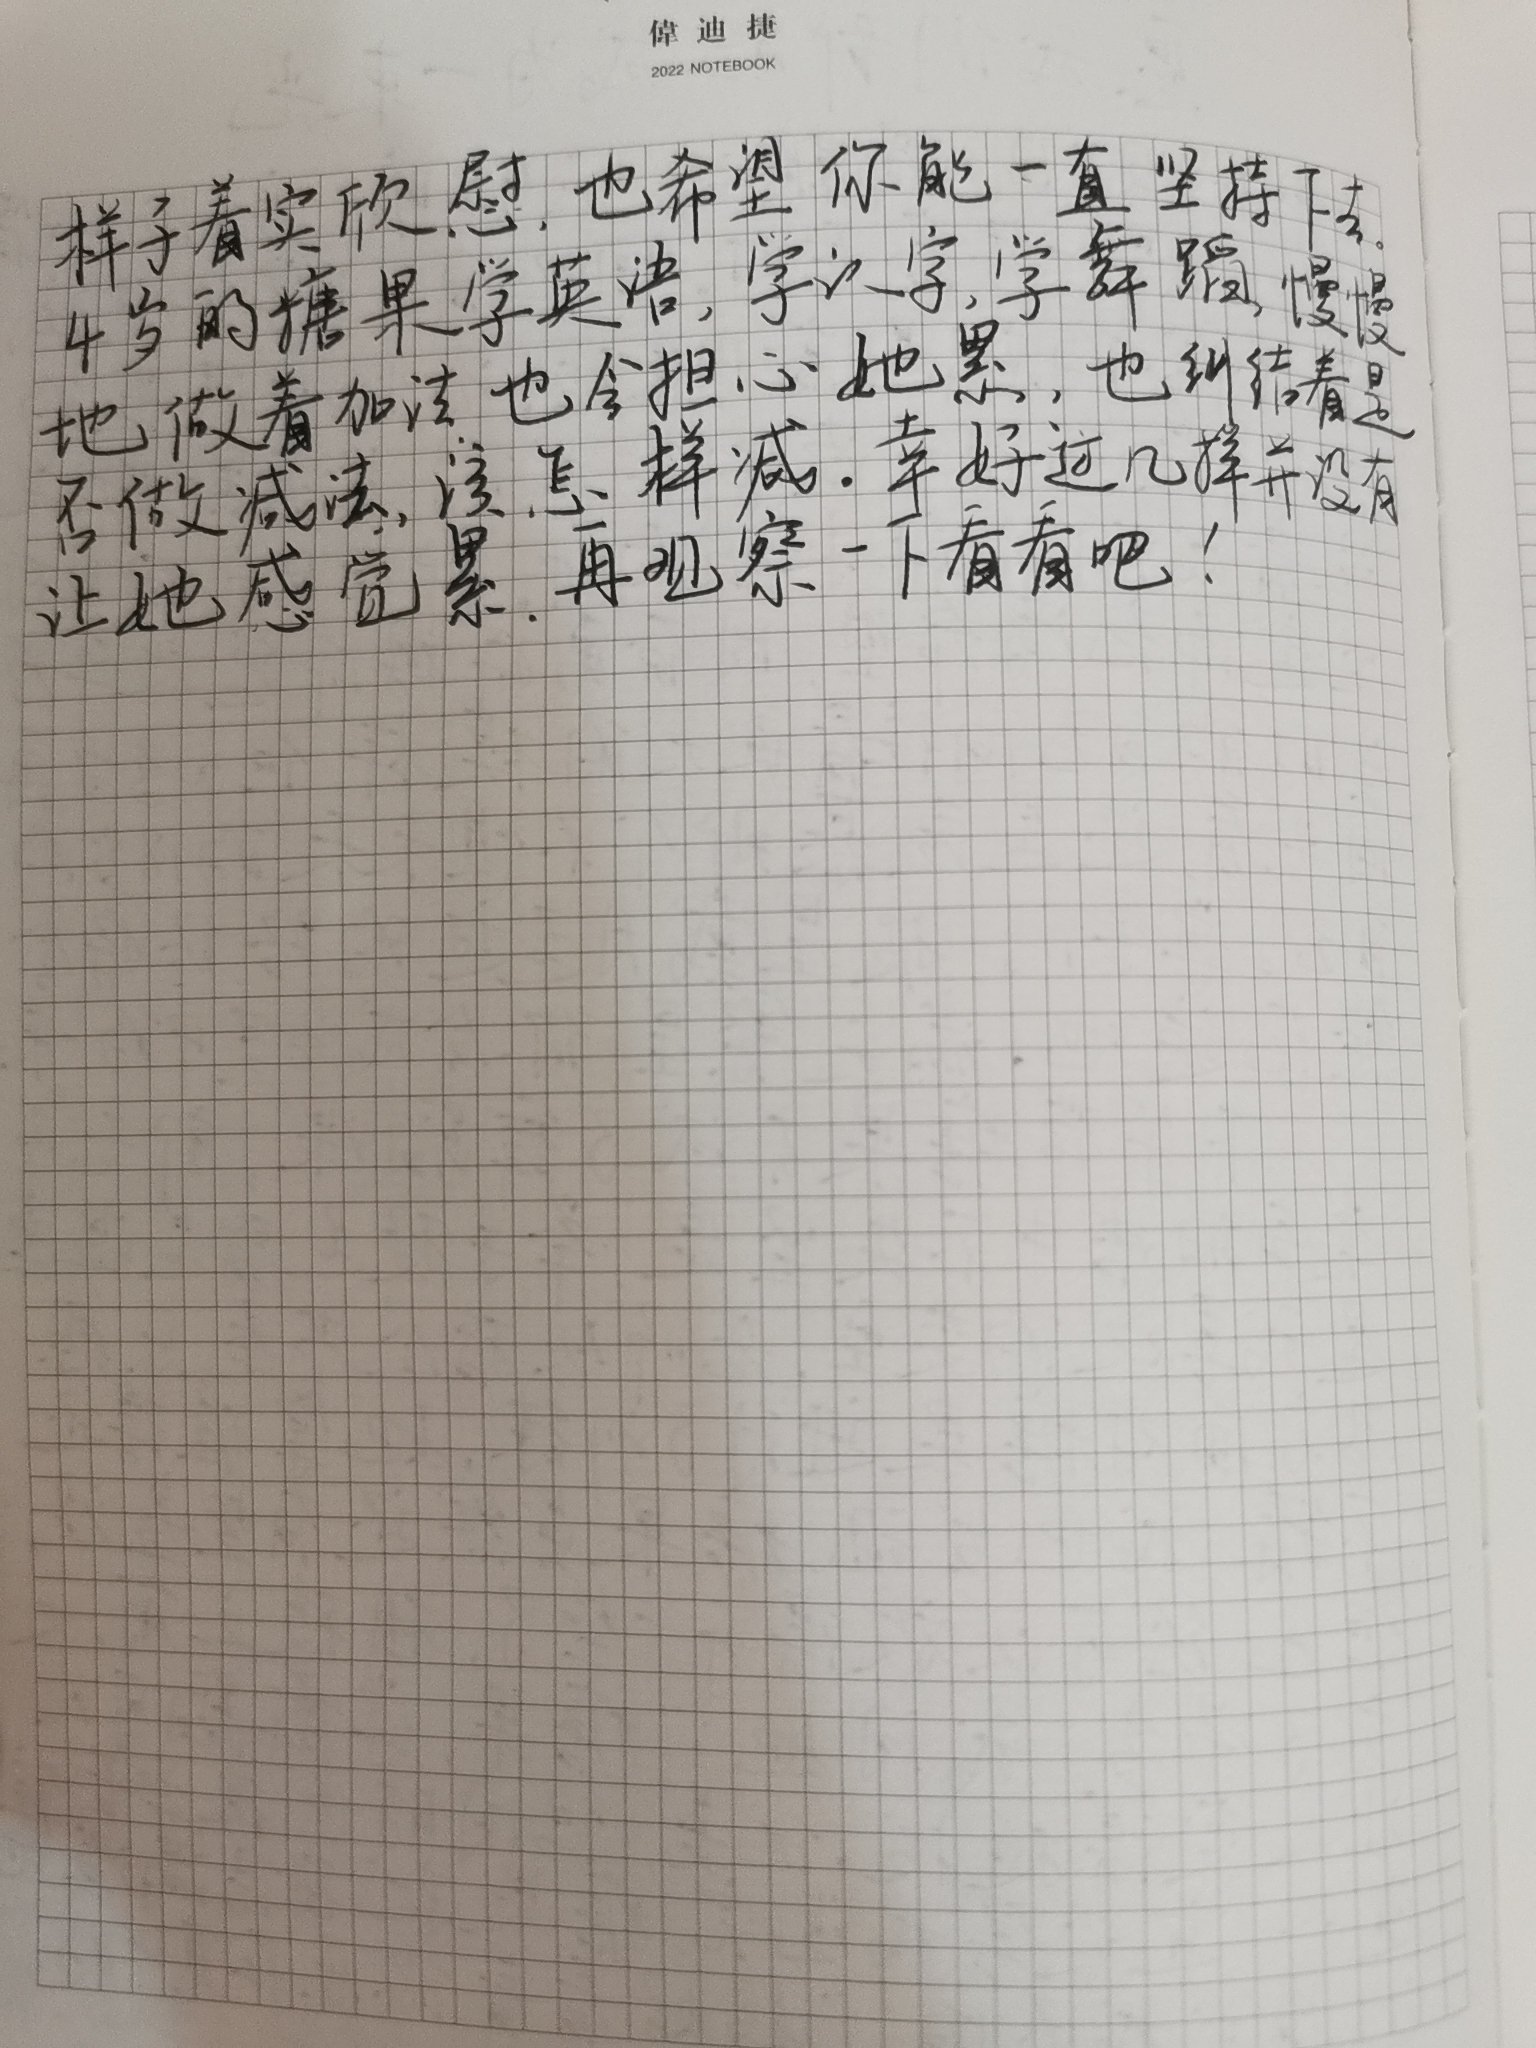 偉迪捷
2022 NOTEBOOK
样子着实欣慰，也希望你能一直坚持下去。
4岁的糖果学英语，学认字，学舞蹈，慢慢
地做着加法也会担心她累，也纠结着是
否做减法，该怎样减．幸好这几样并没有
让她感觉累．再观察一下看看吧！